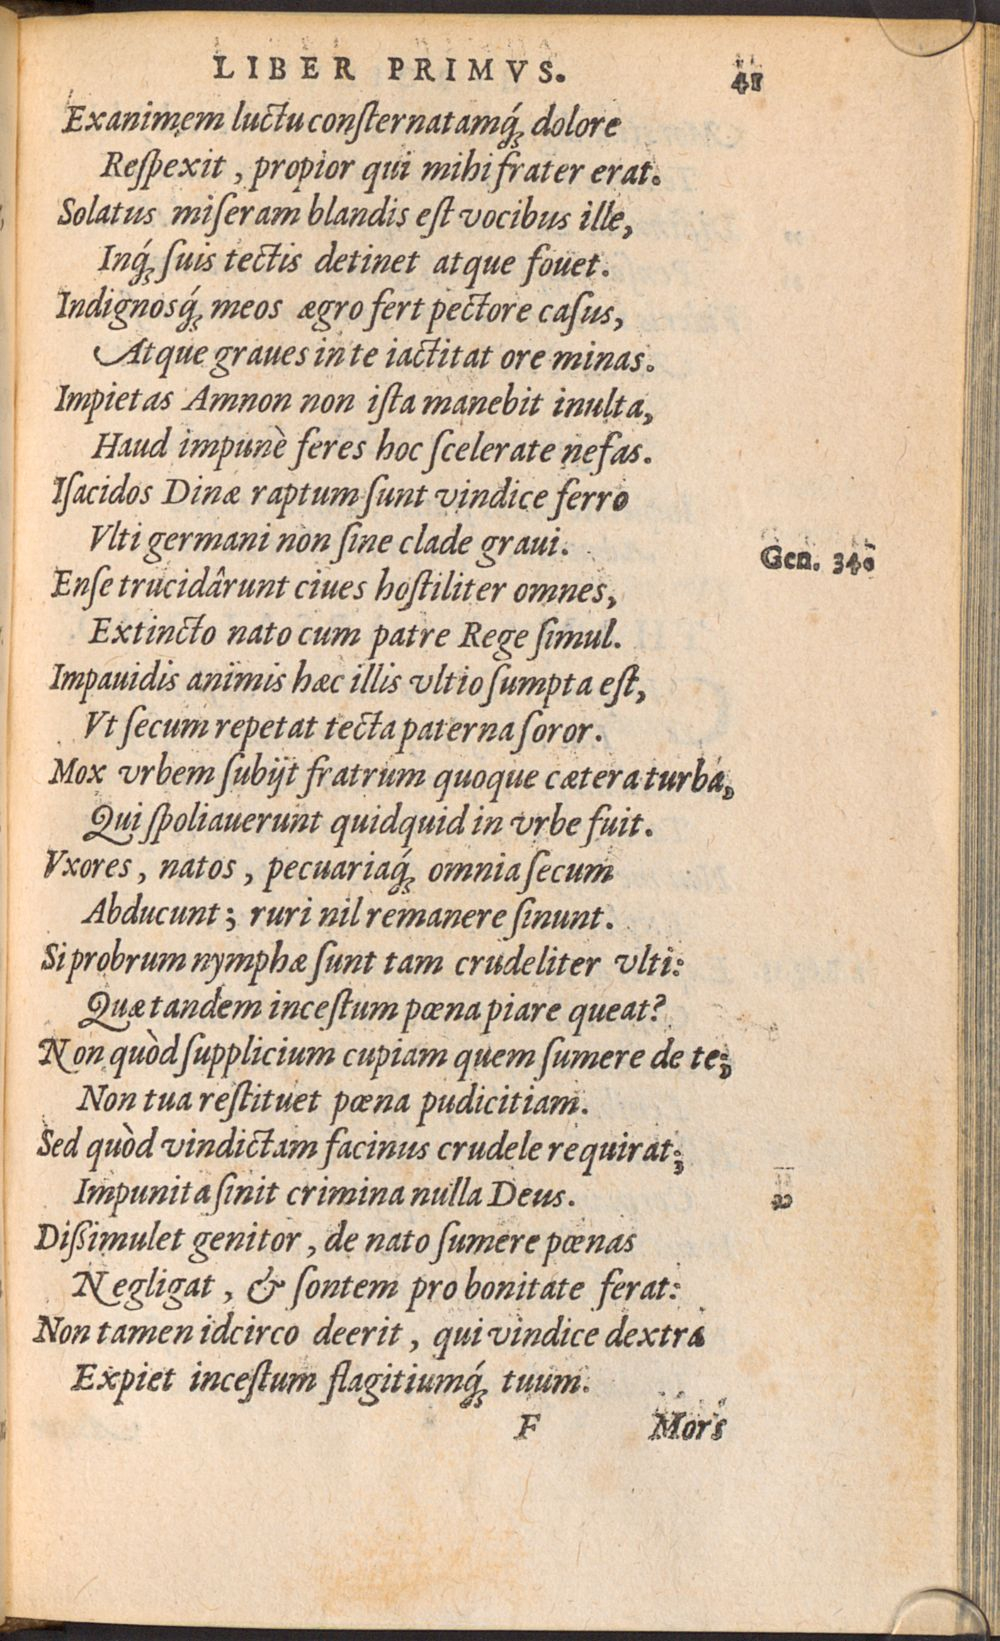 LIBER PRIMVS. 41
Exanimem luctu conſternatamq́; dolore
Reſpexit, propior qui mihi frater erat.
Solatus miſeram blandis eſt vocibus ille,
Inq́; ſuis tectis detinet atque fouet.
Indignosq́; meos ægro fert pectore caſus,
Atque graues in te iactitat ore minas.
Impietas Amnon non iſta manebit inulta,
Haud impunè feres hoc ſcelerate nefas.
Iſacidos Dinæ raptum ſunt vindice ferro
Vlti germani non ſine clade graui.
Gen. 34.
Enſe trucidârunt ciues hoſtiliter omnes,
Extincto nato cum patre Rege ſimul.
Impauidis animis hæc illis vltio ſumpta eſt,
Vt ſecum repetat tecta paterna ſoror.
Mox vrbem ſubijt fratrum quoque cætera turba,
Qui ſpoliauerunt quidquid in vrbe fuit.
Vxores, natos, pecuariaq́; omnia ſecum
Abducunt; ruri nil remanere ſinunt.
Si probrum nymphæ ſunt tam crudeliter vlti:
Quæ tandem inceſtum pœna piare queat?
Non quòd ſupplicium cupiam quem ſumere de te;
Non tua reſtituet pœna pudicitiam.
Sed quòd vindictam facinus crudele requirat;
Impunita ſinit crimina nulla Deus.
Diſſimulet genitor, de nato ſumere pœnas
Negligat, & ſontem pro bonitate ferat:
Non tamen idcirco deerit, qui vindice dextra
Expiet inceſtum flagitiumq́; tuum.
F Mors